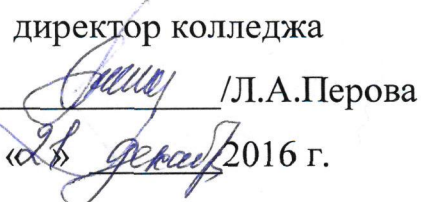 директор колледжа
/Л.А.Перова
« » декабр 2016 г.